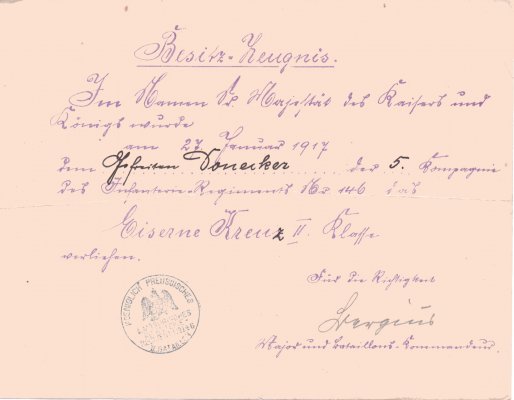 Besitz-Zeugnis.
Im Namen Sr. Majestät des Kaisers und
Königs wurde
am 27. Januar 1917
dem Gefreiten Donecker der 5. Kompagnie
des Infanterie-Regiments Nr 146 das
Eiserne Kreuz II. Klasse
verliehen.
Für die Richtigkeit
Bergius
Major und Bataillons-Kommandeur.
KOENIGLICH PREUSSISCHES